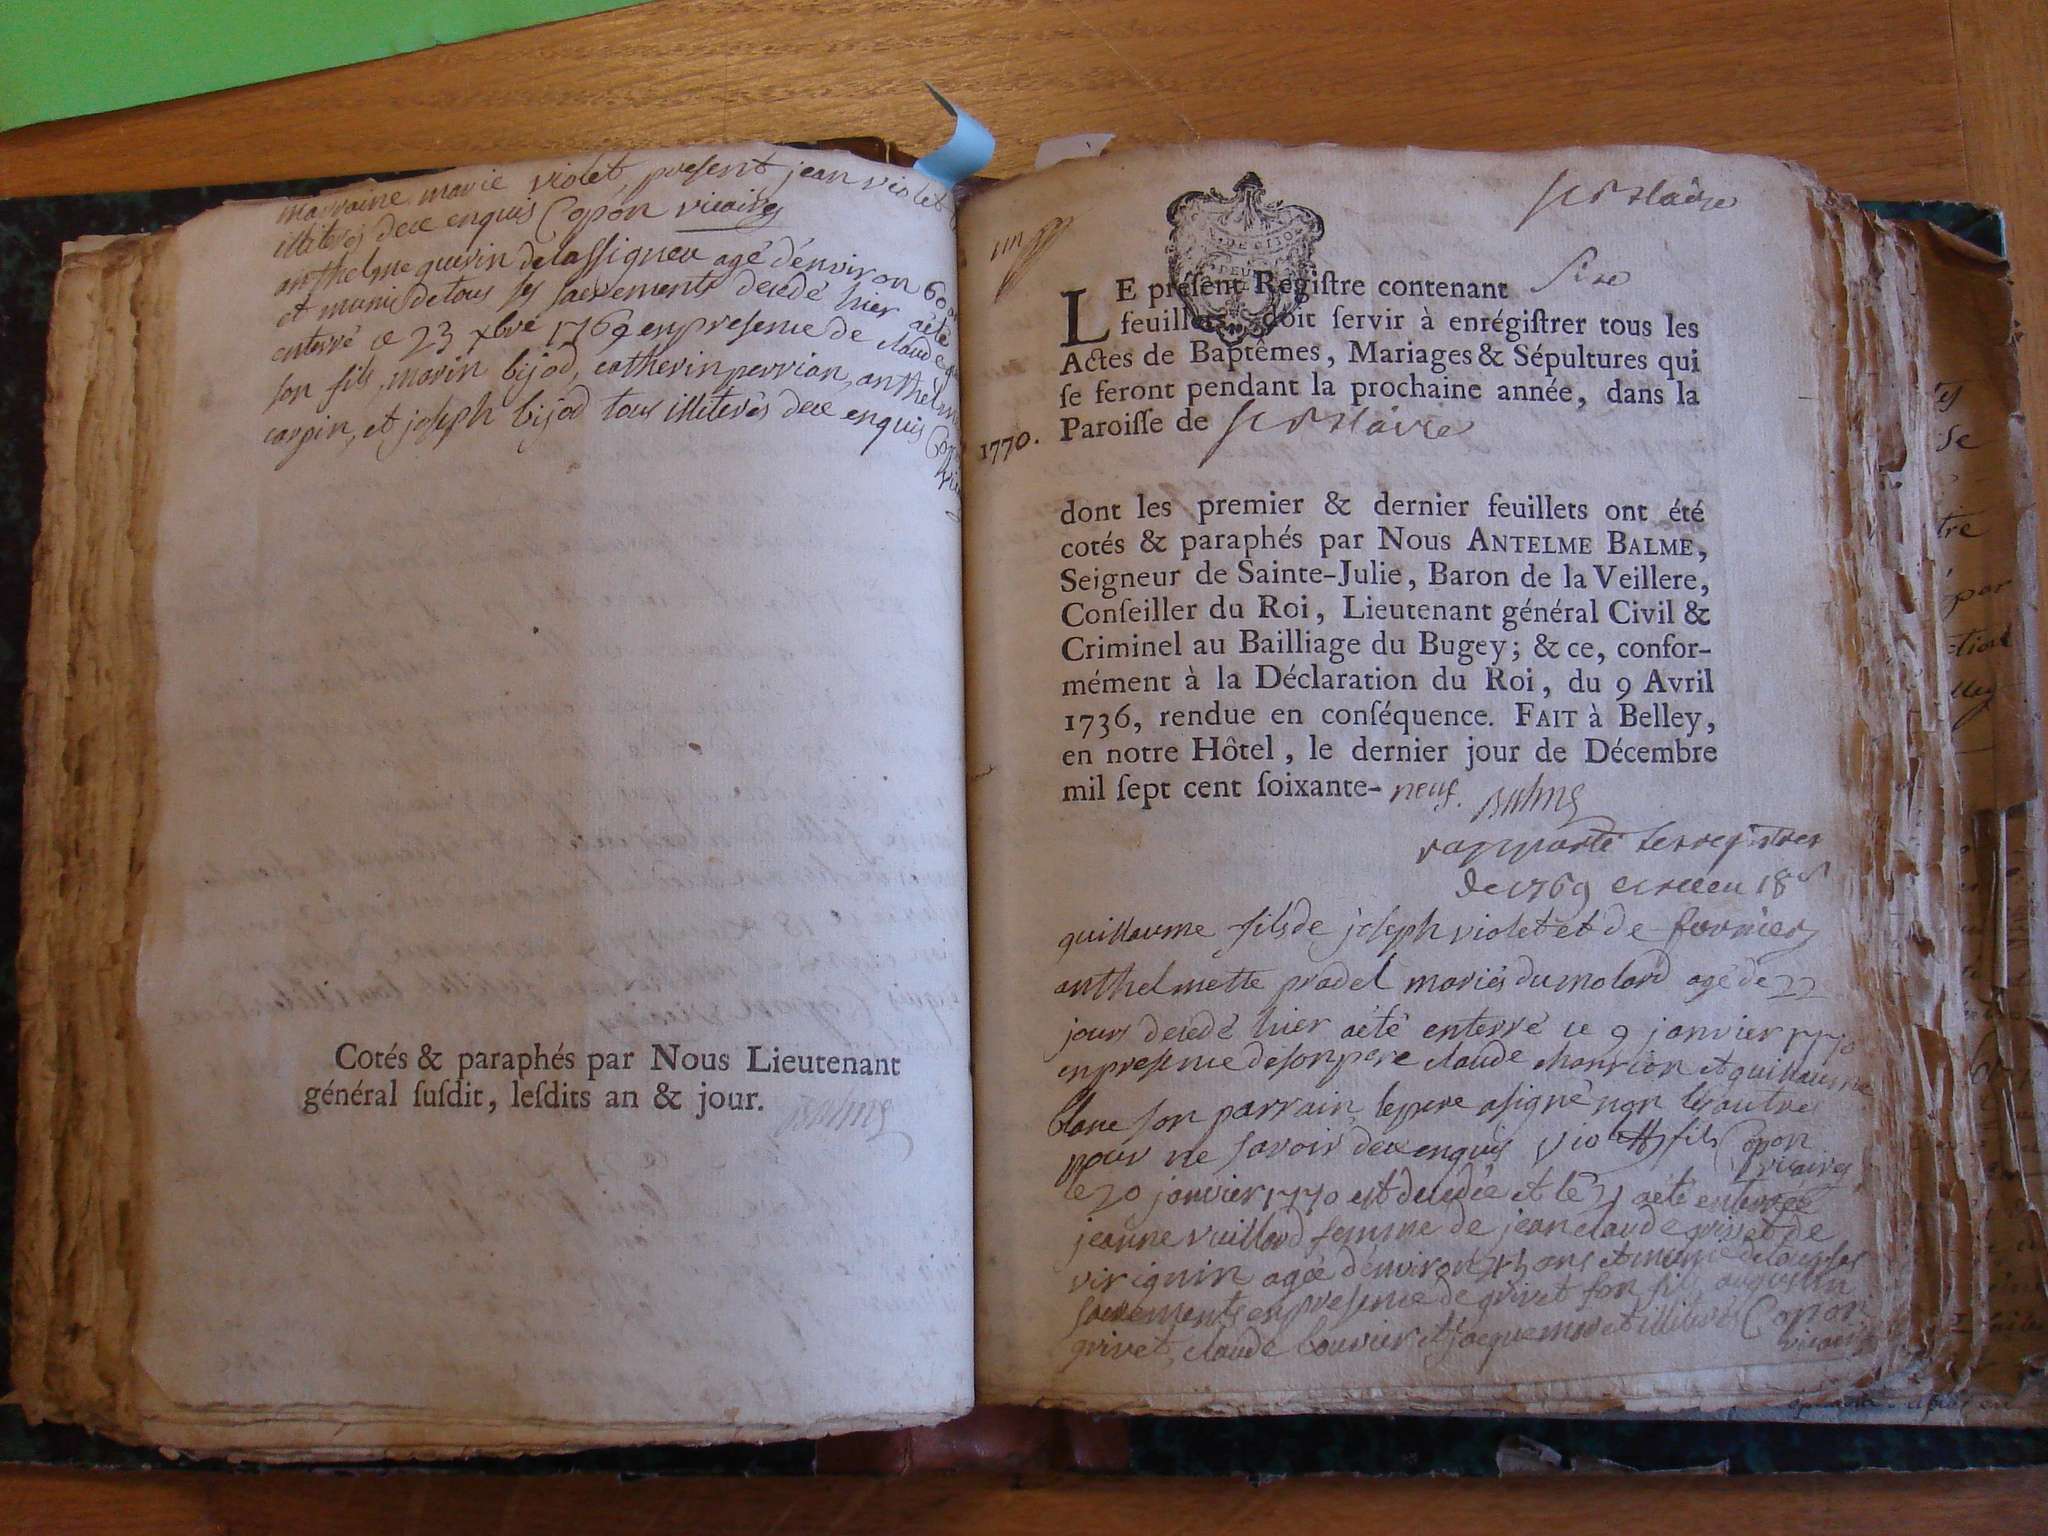 marraine marie violet, present jean violet
illiterés dece enquis Copon vicaire
anthelme guerin de lassigneu agé d'environ 60
et muni de tous ses sacrements decedé hier aété
enterré ce 23 xbre 1769 enpresence de claude
son fils, marin bijod, catherin perrian, anthelm
carpin, et joseph bijod tous illiterés dece enquis
Cotés & paraphés par Nous Lieutenant
général suſdit, leſdits an & jour. Balme
un
St Blaise
LE préſent Regiſtre contenant Six
feuillets doit ſervir à enrégiſtrer tous les
Actes de Baptêmes, Mariages & Sépultures qui
ſe feront pendant la prochaine année, dans la
1770. Paroiſſe de St Blaise
dont les premier & dernier feuillets ont été
cotés & paraphés par Nous ANTELME BALME,
Seigneur de Sainte-Julie, Baron de la Veillere,
Conſeiller du Roi, Lieutenant général Civil &
Criminel au Bailliage du Bugey; & ce, confor-
mément à la Déclaration du Roi, du 9 Avril
1736, rendue en conſéquence. FAIT à Belley,
en notre Hôtel, le dernier jour de Décembre
mil ſept cent ſoixante- neuf. Balme
rapporté le registre
de 1769
guillaume fils de joseph violet et de
anthelmette pradel mariés du molard agé de 22
jours decedé hier aété enterré ce 9 janvier 1770
enpresence desonpere claude et guillaume
blanc son parrain, lepere asigné non les autres
pour ne savoir dece enquis violet fils Copon
vicaire
le 20 janvier 1770 est decedée et le 21 aété enterrée
jeanne vuillard femme de jean claude grivet de
virignin agée d'environ ans et munie de tous ses
sacrements enpresence de grivet son fils, augustin
grivet, claude bouvier et illiterés Copon
vicaire